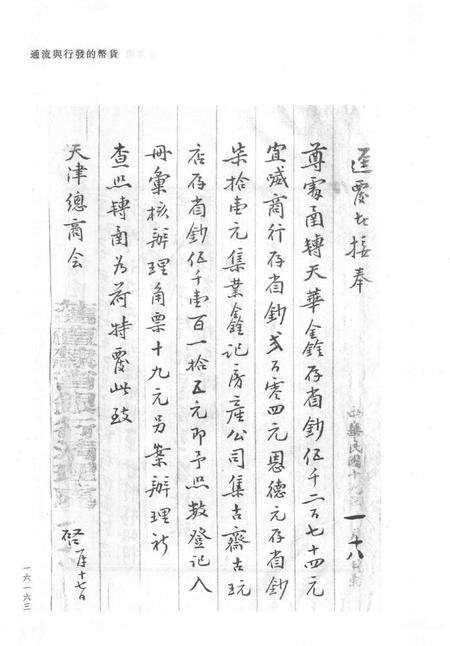 貨幣的發行與流通
逕覆者接奉
尊處函轉天華金銓存省鈔伍千二百七十四元
宜威商行存省鈔弍百零四元恩德元存省鈔
柒拾壹元集業鑫記房產公司集古齋古玩
店存省鈔伍千壹百一拾五元即予照數登記入
冊彙核辦理角票十九元另案辦理祈
查照轉函為荷特覆此致
天津總商会
啓 月十七日
中華民國十九
一六一六三